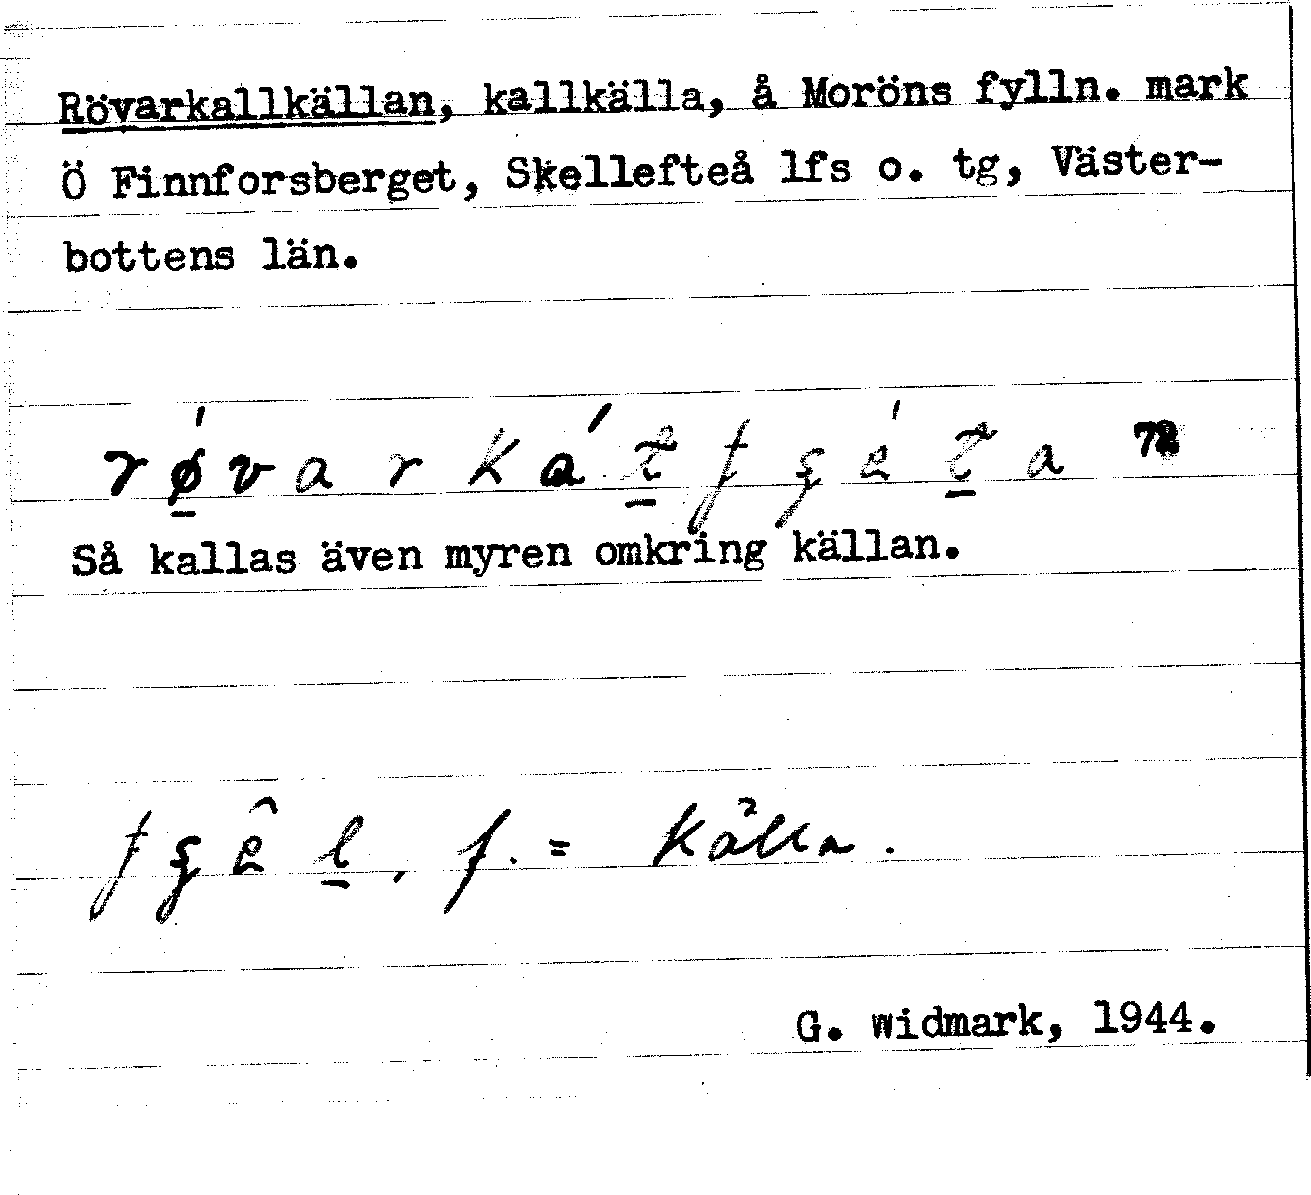 Rövarkallkällan, kallkälla, å Moröns fylln. mark
Ö Finnforsberget, Skellefteå lfs o. tg, Väster-
bottens län.
Så kallas även myren omkring källan.
f. = källa.
G. Widmark, 1944.